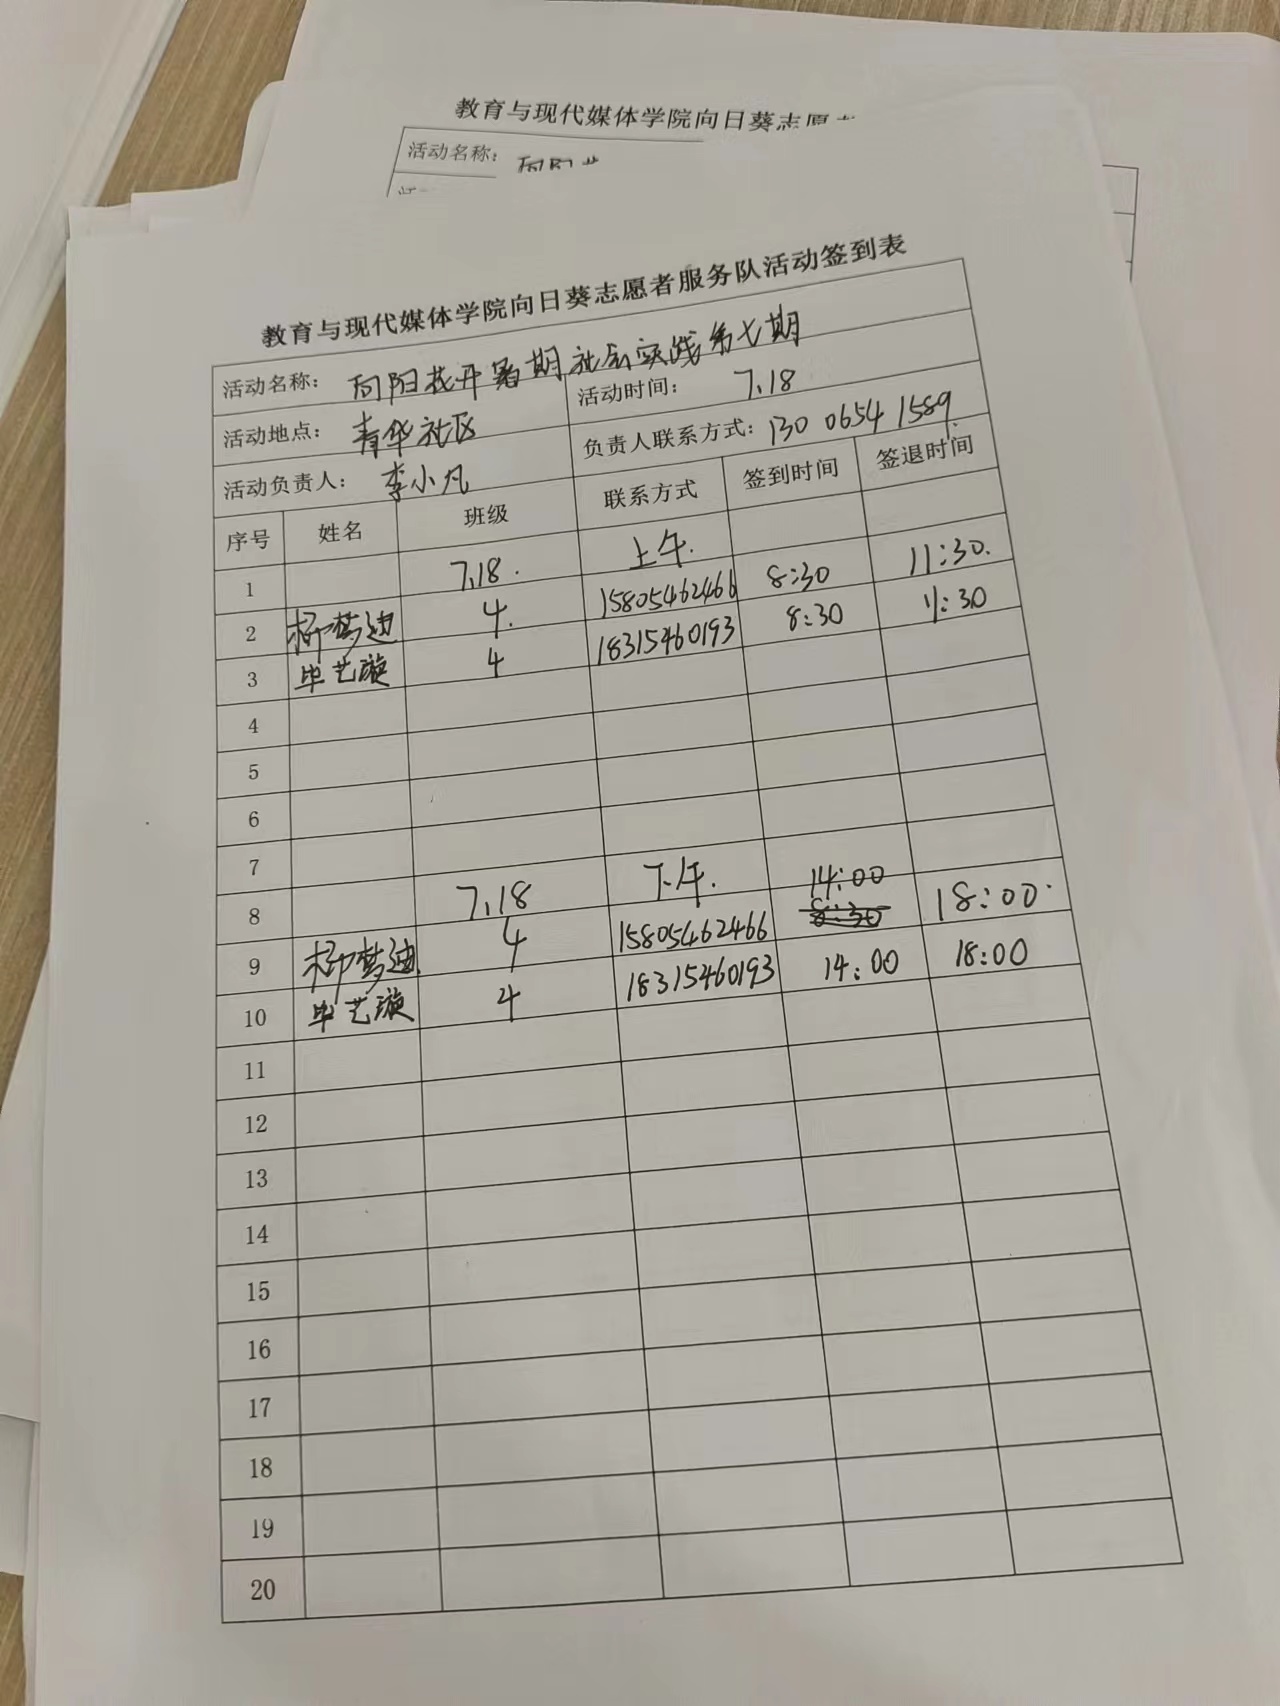 教育与现代媒体学院向日葵志愿者
活动名称：向阳花
教育与现代媒体学院向日葵志愿者服务队活动签到表
活动名称： 向阳花开暑期社会实践第七期
活动地点： 青华社区 活动时间： 7.18
活动负责人： 李小凡 负责人联系方式：130 0654 1589
序号 姓名 班级 联系方式 签到时间 签退时间
1 7.18. 上午.
2 柳梦迪 4. 15805462466 8:30 11:30.
3 毕艺璇 4 18315460193 8:30 11:30
4
5
6
7
8 7.18 下午. 14:00
9 柳梦迪 4 15805462466 8:30 18:00.
10 毕艺璇 4 18315460193 14:00 18:00
11
12
13
14
15
16
17
18
19
20